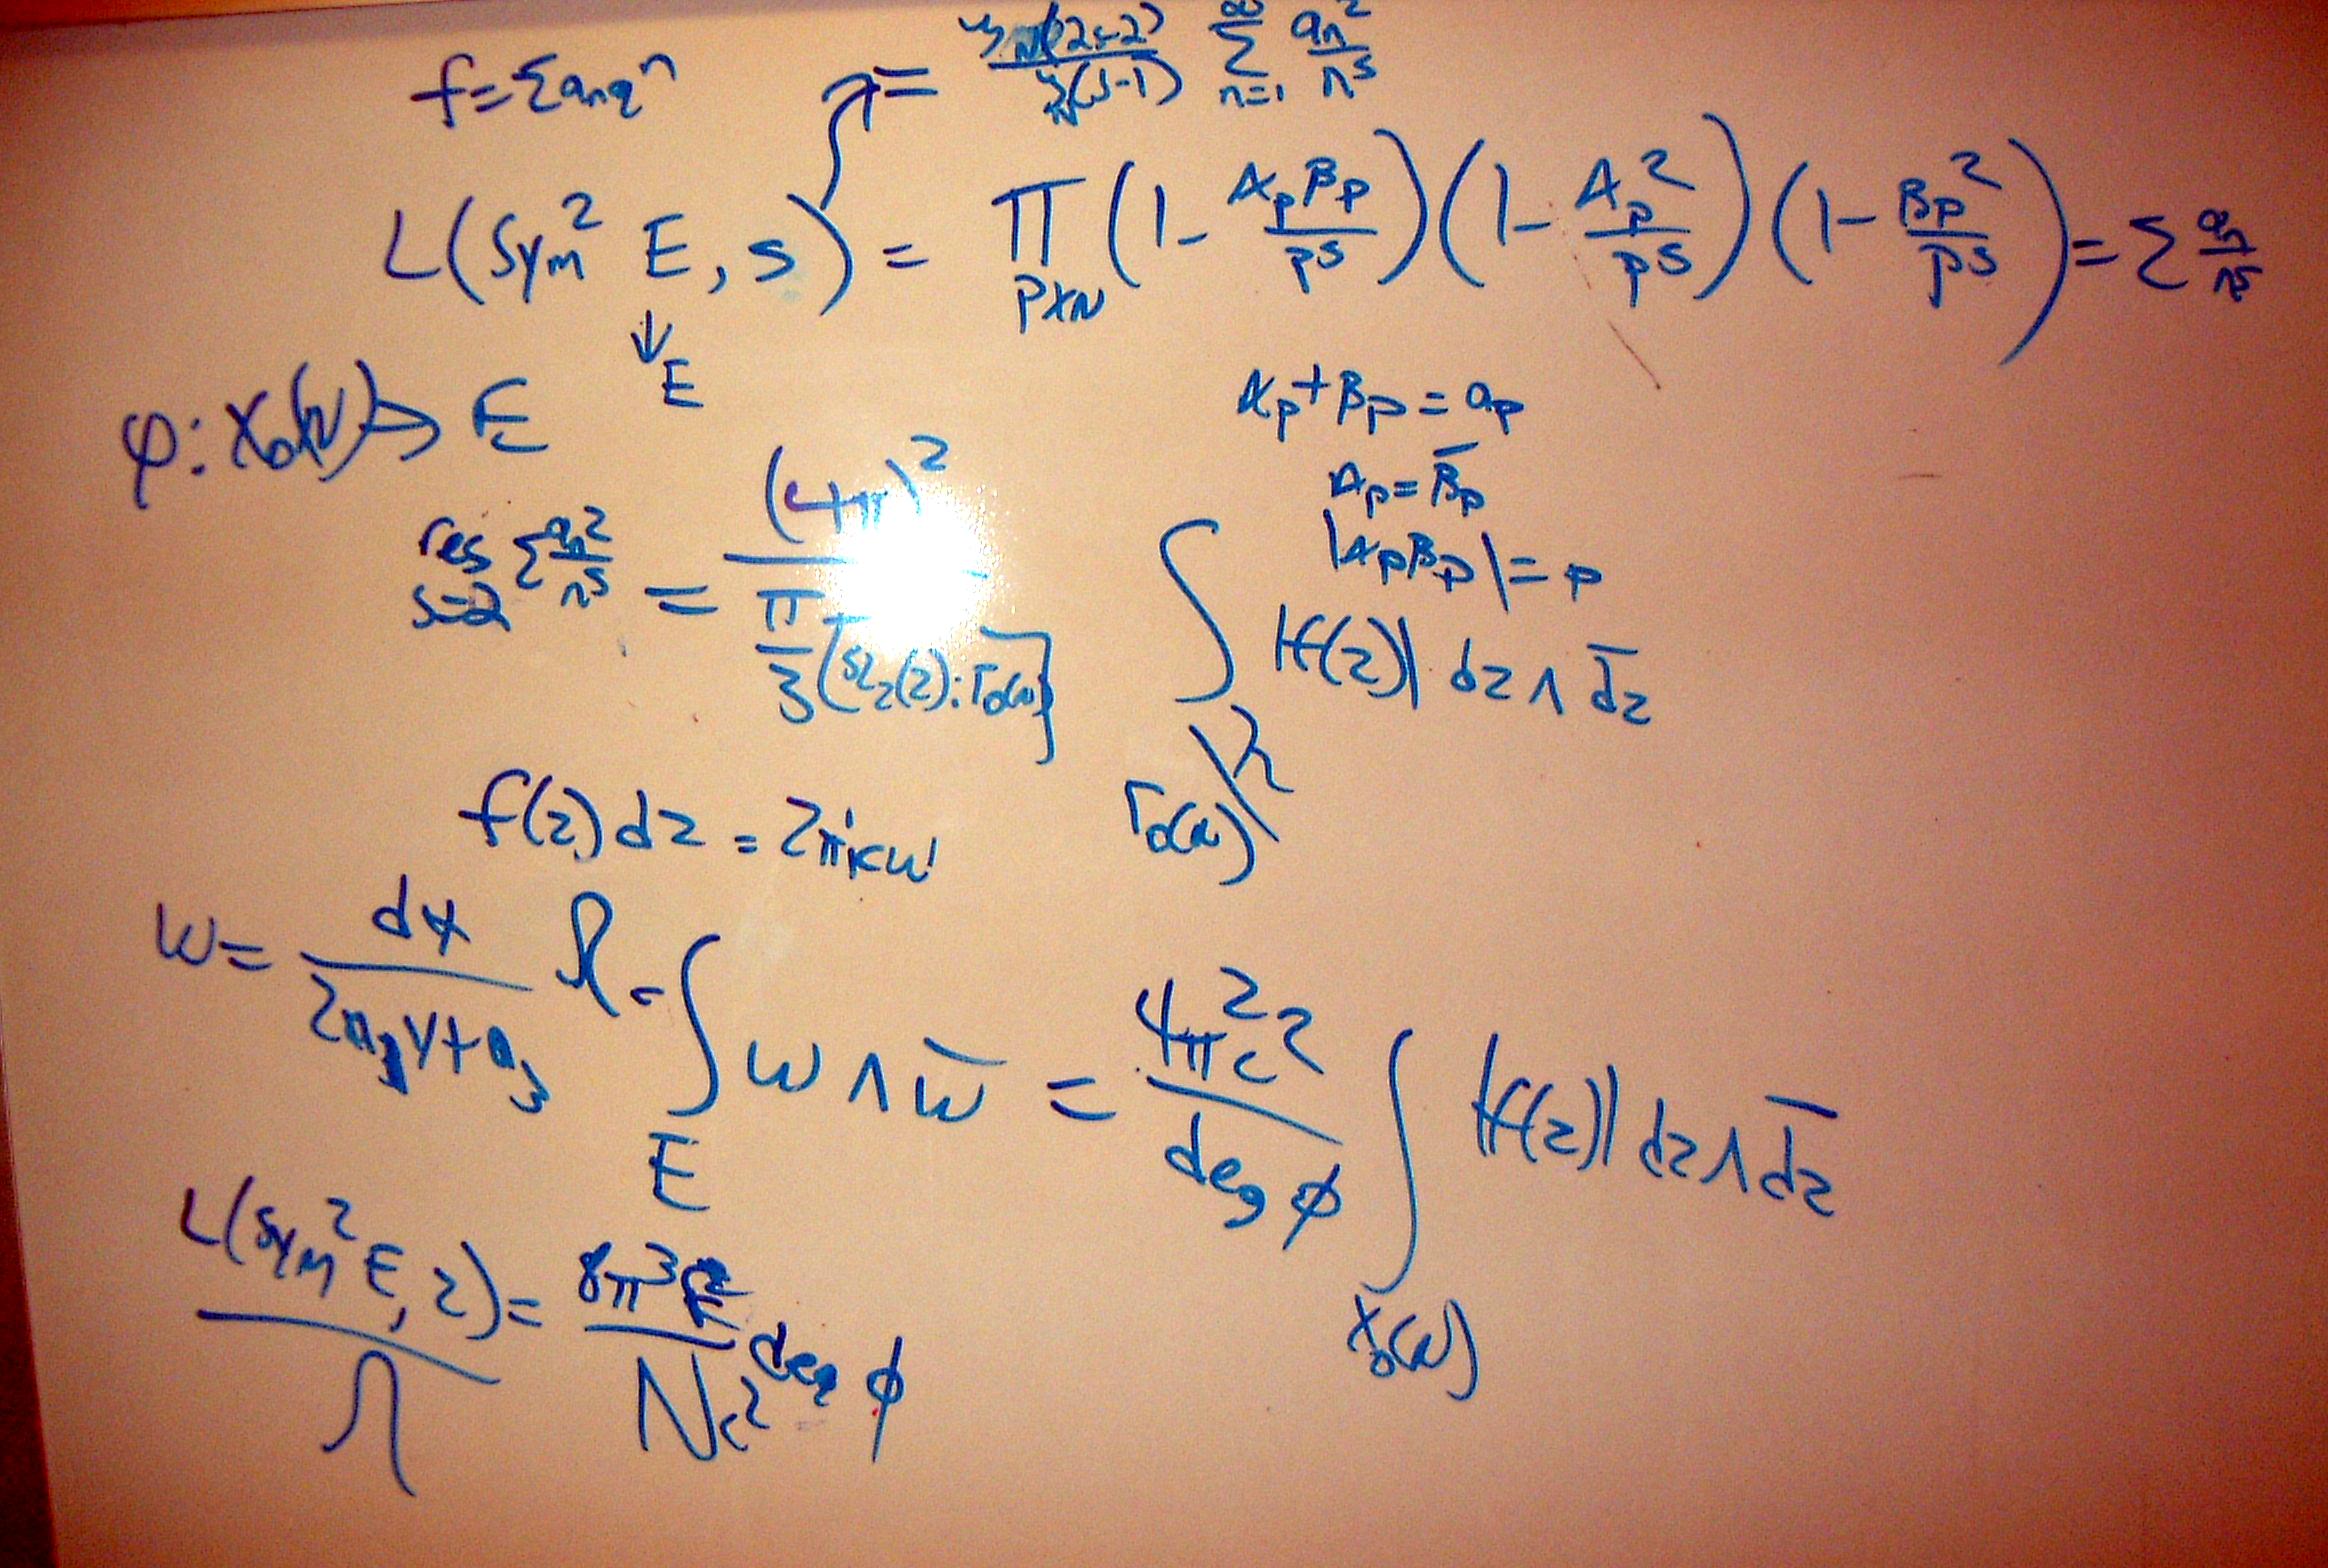 f = Σaₙqⁿ
= ζ_N(2s-2) / ζ_N(s-1) Σ_{n=1}^∞ aₙ² / nˢ
L(Sym² E, s) = Π_{p∤N} (1 - α_p β_p / pˢ)(1 - α_p² / pˢ)(1 - β_p² / pˢ) = Σ aₙ / nˢ
↓ E
φ: X₀(N) → E
α_p + β_p = a_p
α_p = β̄_p
|α_p β_p| = p
res_{s=2} Σ aₙ² / nˢ = (4π)² / (π/3 [SL₂(Z): Γ₀(N)]) ∫_{Γ₀(N)\h} |f(z)| dz ∧ d̄z̄
f(z) dz = 2πi c ω
ω = dx / (2a₁y + a₃) Ω = ∫_E ω ∧ ω̄ = 4π²c² / deg φ ∫_{X₀(N)} |f(z)| dz ∧ d̄z̄
L(Sym² E, 2) / Ω = 8π³ / Nc² deg φ